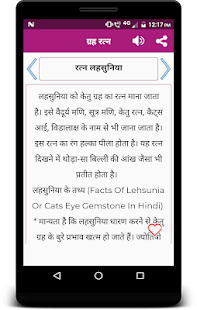 N 4G 12:17 PM
ग्रह रत्न
रत्न लहसुनिया
लहसुनिया को केतु ग्रह का रत्न माना जाता
है। इसे वैदूर्य मणि, सूत्र मणि, केतु रत्न, कैट्स
आई, विडालाक्ष के नाम से भी जाना जाता है।
इस रत्न का रंग हल्का पीला होता है। यह रत्न
दिखने में थोड़ा-सा बिल्ली की आंख जैसा भी
प्रतीत होता है।
लहसुनिया के तथ्य (Facts Of Lehsunia
Or Cats Eye Gemstone In Hindi)
* मान्यता है कि लहसुनिया धारण करने से केतु
ग्रह के बुरे प्रभाव खत्म हो जाते हैं। ज्योतिषी